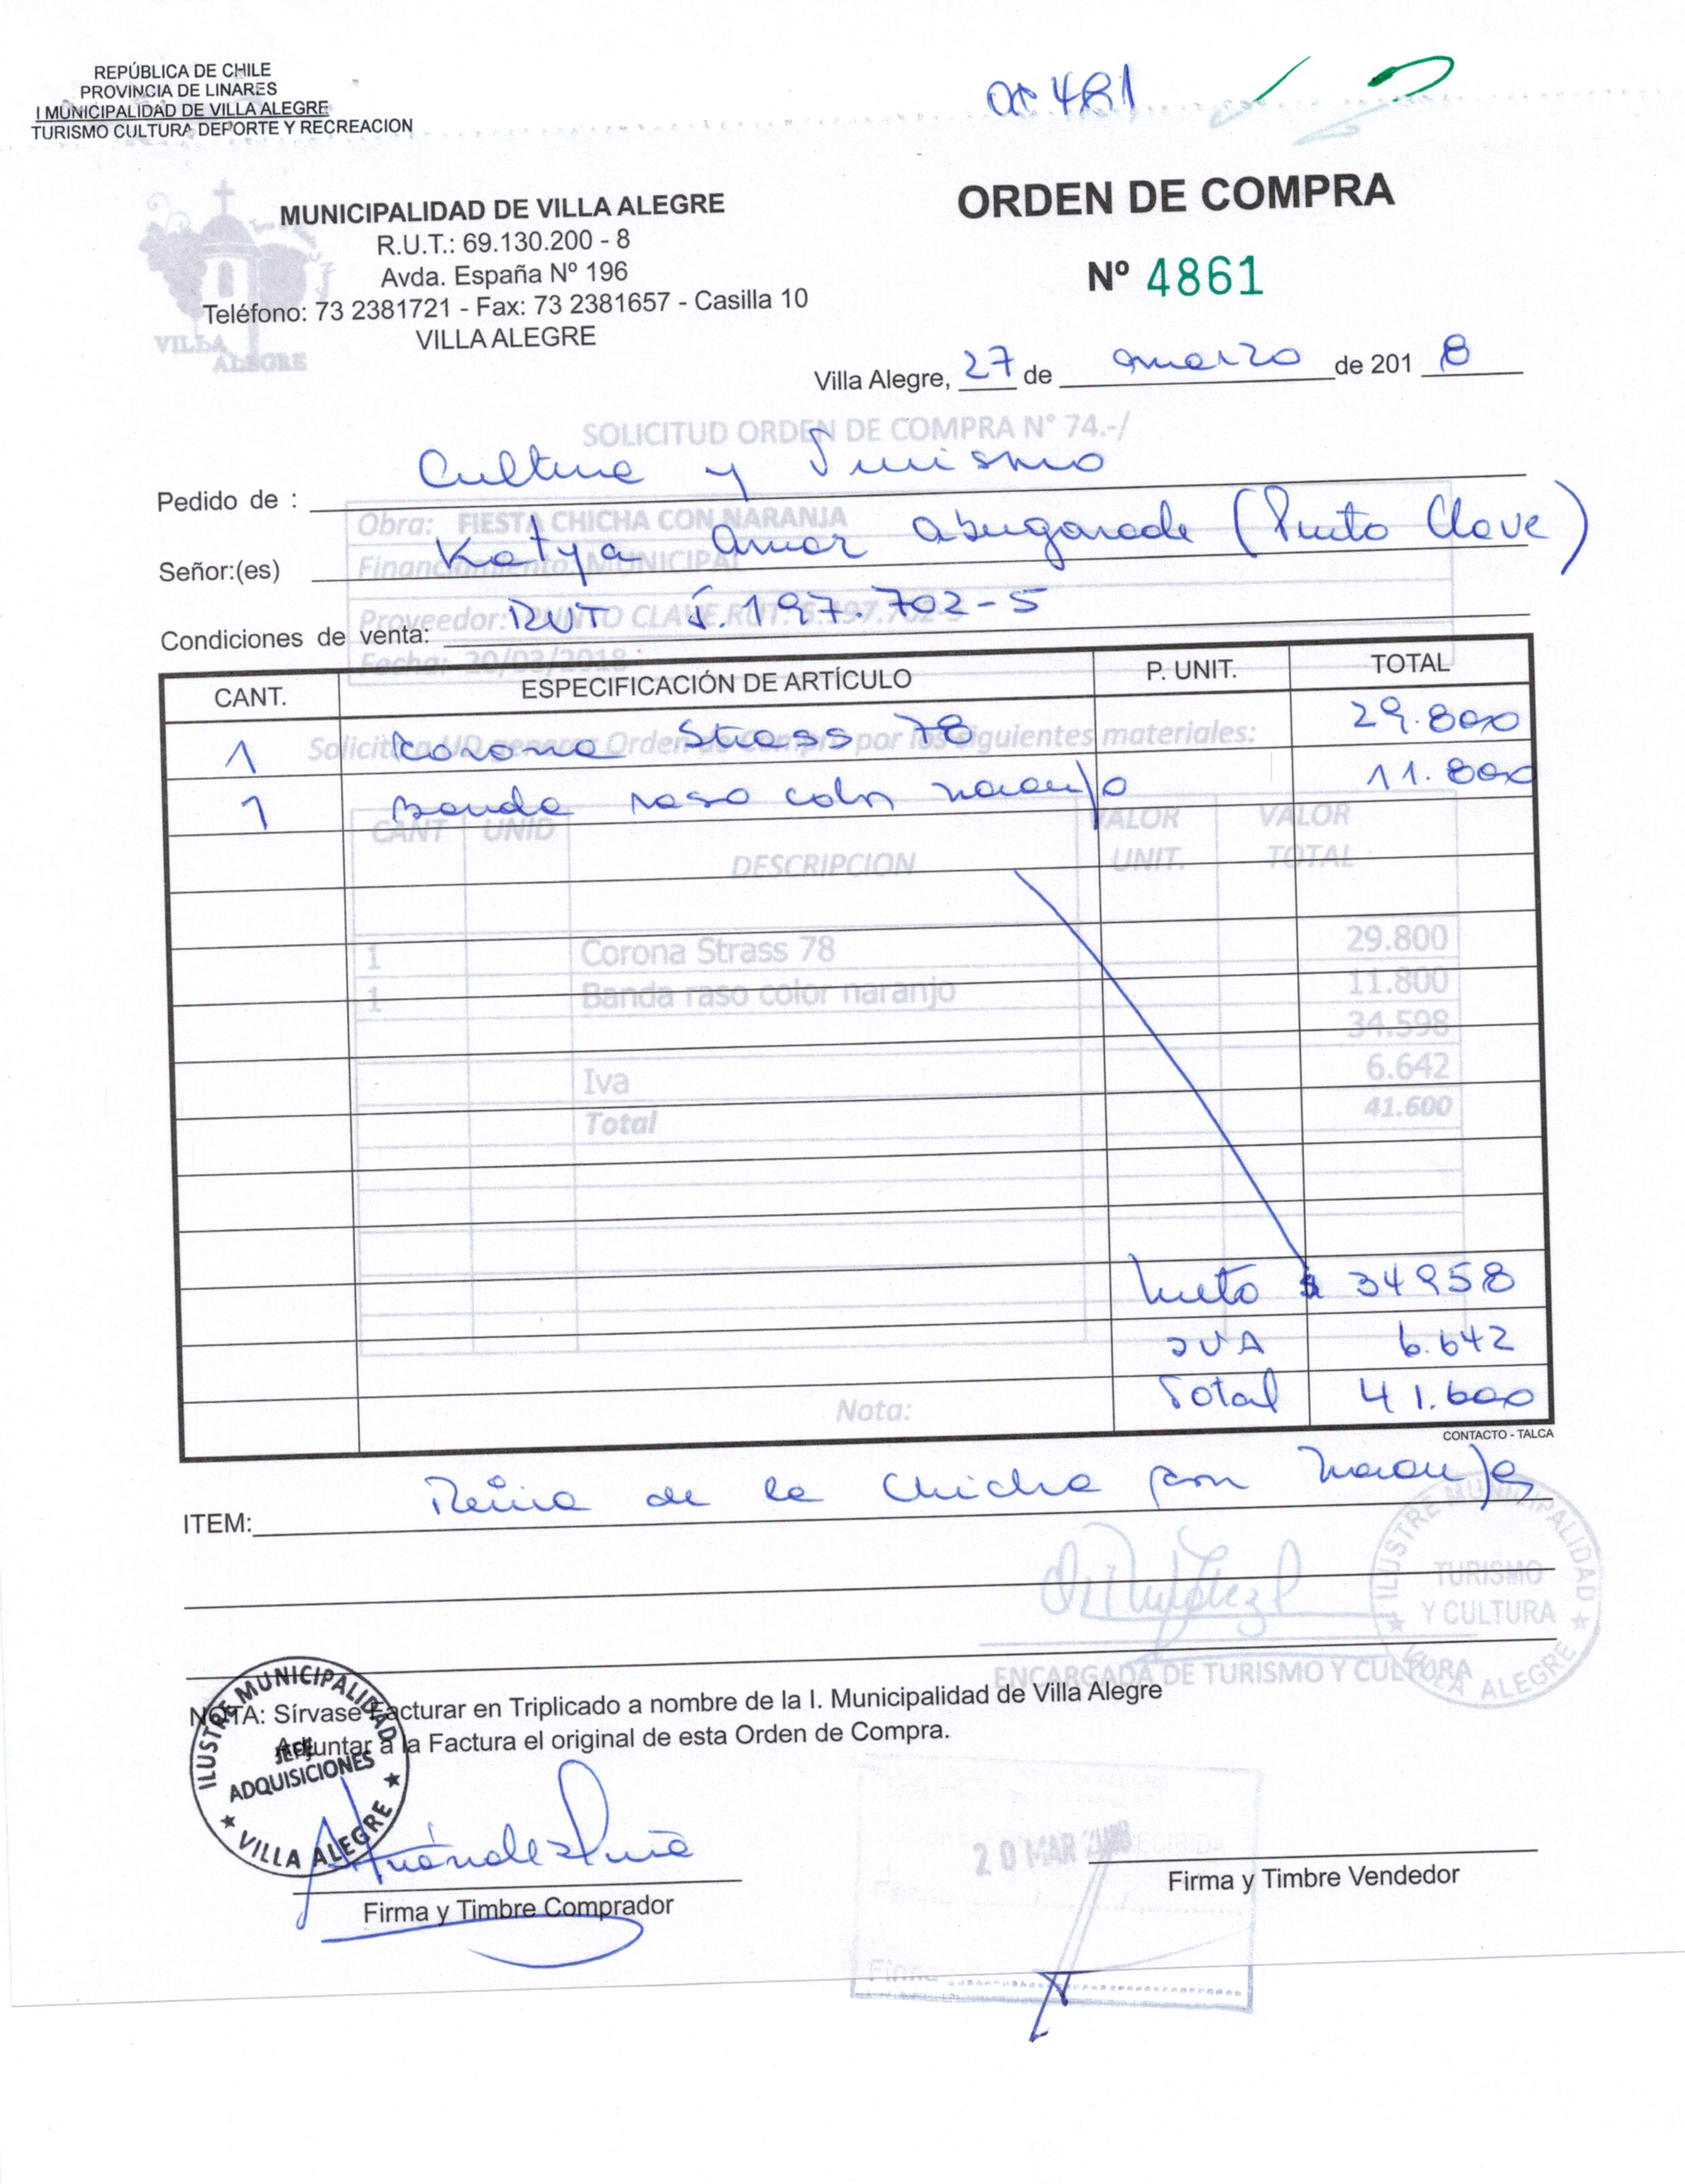 REPÚBLICA DE CHILE
PROVINCIA DE LINARES
I MUNICIPALIDAD DE VILLA ALEGRE
TURISMO CULTURA DEPORTE Y RECREACION
481
MUNICIPALIDAD DE VILLA ALEGRE
R.U.T.: 69.130.200 - 8
Avda. España Nº 196
Teléfono: 73 2381721 - Fax: 73 2381657 - Casilla 10
VILLA ALEGRE
VILLA ALEGRE
ORDEN DE COMPRA
Nº 4861
Villa Alegre, 27 de marzo de 2018
SOLICITUD ORDEN DE COMPRA N° 74.-/
Pedido de : Cultura y Turismo
Obra: FIESTA CHICHA CON NARANJA
Señor:(es) Katya Amar Abugarade (Punto Clave)
Financiamiento: MUNICIPAL
Condiciones de venta: RUT 5.197.702-5
Proveedor: PUNTO CLAVE RUT: 5.197.702-5
Fecha: 20/03/2018
CANT. ESPECIFICACIÓN DE ARTÍCULO P. UNIT. TOTAL
1 Korona Strass 78 29.800
Solicito a UD generar Orden de Compra por los siguientes materiales:
1 Banda raso color naranjo 11.800
CANT UNID DESCRIPCION VALOR UNIT. VALOR TOTAL
1 Corona Strass 78 29.800
1 Banda raso color naranjo 11.800
34.598
Iva 6.642
Total 41.600
Neto $ 34958
IVA 6.642
Total 41.600
Nota:
CONTACTO - TALCA
ITEM: Reina de la Chicha con Naranja
ILUSTRE MUNICIPALIDAD
TURISMO
Y CULTURA
VILLA ALEGRE
ENCARGADA DE TURISMO Y CULTURA
NOTA: Sírvase Facturar en Triplicado a nombre de la I. Municipalidad de Villa Alegre
Adjuntar a la Factura el original de esta Orden de Compra.
ILUSTRE MUNICIPALIDAD
JEFE
ADQUISICIONES
VILLA ALEGRE
20 MAR 2018
RECIBIDA
Fecha
Firma
Firma y Timbre Comprador
Firma y Timbre Vendedor